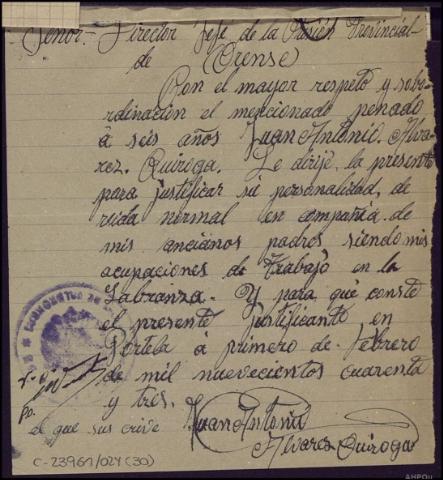 Señor - Director Jefe de la Prisión Provincial
de Orense
Con el mayor respeto y subo-
rdinación el mencionado penado
á seis años Juan Antonio. Alva-
rez. Quiroga. Le dirije, la presente
para justificar su personalidad, de
vida normal en compañia de
mis ancianos padres siendo mis
ocupaciones de trabajo en la
Labranza. Y para que conste
el presente justificante en
Portela á primero de Febrero
de mil nuevecientos cuarenta
y tres.
el que sus crive Juan Antonio
Alvares Quiroga
C-23961/024(30)
AHPOu